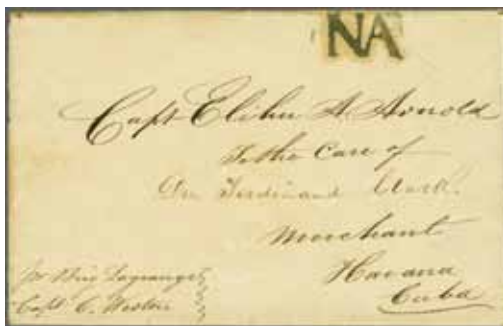 NA
Capt Elihu A. Arnold
To the Care of
Ferdinand Clark.
Merchant
Havana
Cuba
pr Brig Lagrange
Capt C.